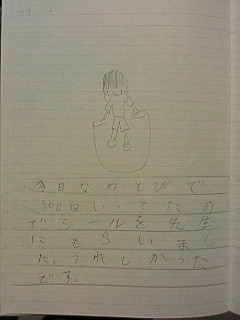 今日なわとびで、
300回いってたの
でシールを先生
にもらいまし
た。うれしかった
です。